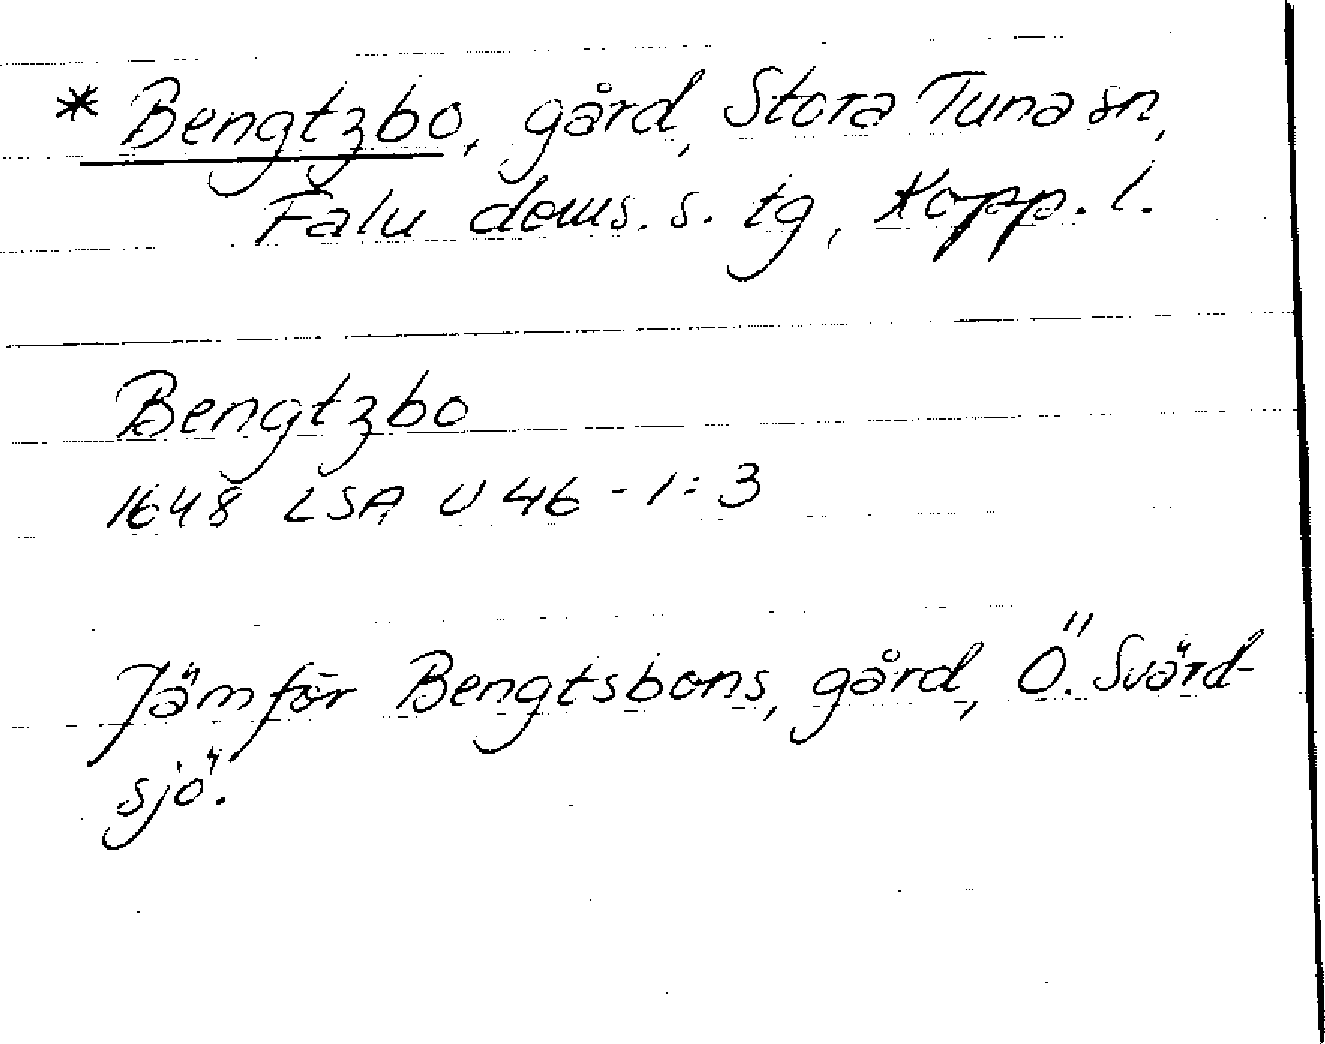 * Bengtzbo, gård, Stora Tuna sn,
Falu doms. s. tg, Kopp. l.
Bengtzbo
1648 LSA U 46 - 1:3
Jämför Bengtsbons, gård, Ö. Svärd-
sjö.